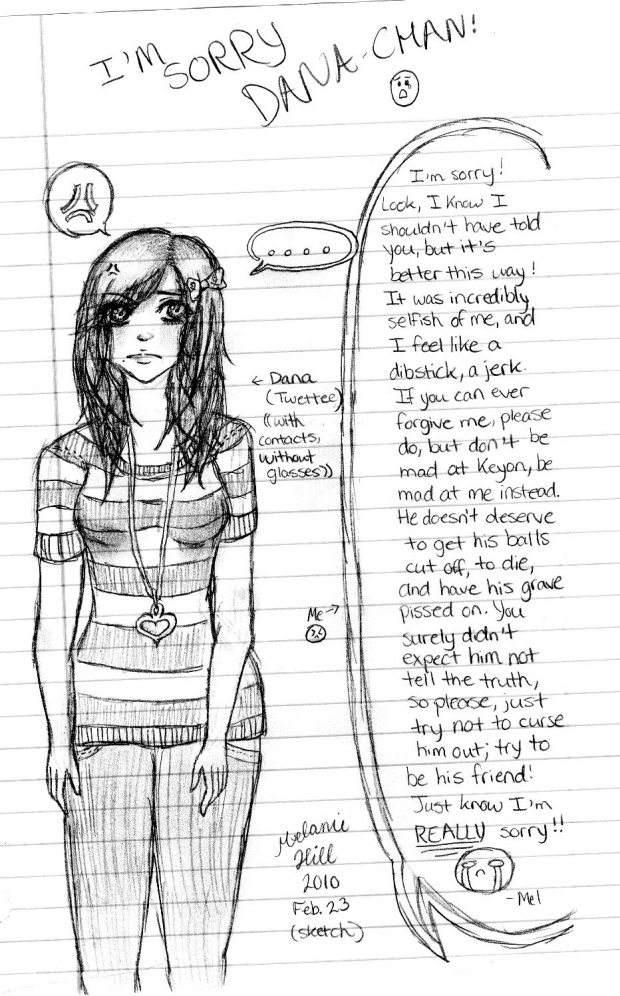 I'M
SORRY
DANA-CHAN!
I'm sorry!
Look, I know I
shouldn't have told
you, but it's
better this way!
It was incredibly
selfish of me, and
I feel like a
dibstick, a jerk.
If you can ever
forgive me, please
do, but don't be
mad at Keyon, be
mad at me instead.
He doesn't deserve
to get his balls
cut off, to die,
and have his grave
pissed on. You
surely didn't
expect him not
tell the truth,
so please, just
try not to curse
him out; try to
be his friend!
Just know I'm
REALLY sorry!!
-Mel
← Dana
(Twettee)
((with
contacts,
without
glasses))
Me →
Melanie
Hill
2010
Feb. 23
(sketch)